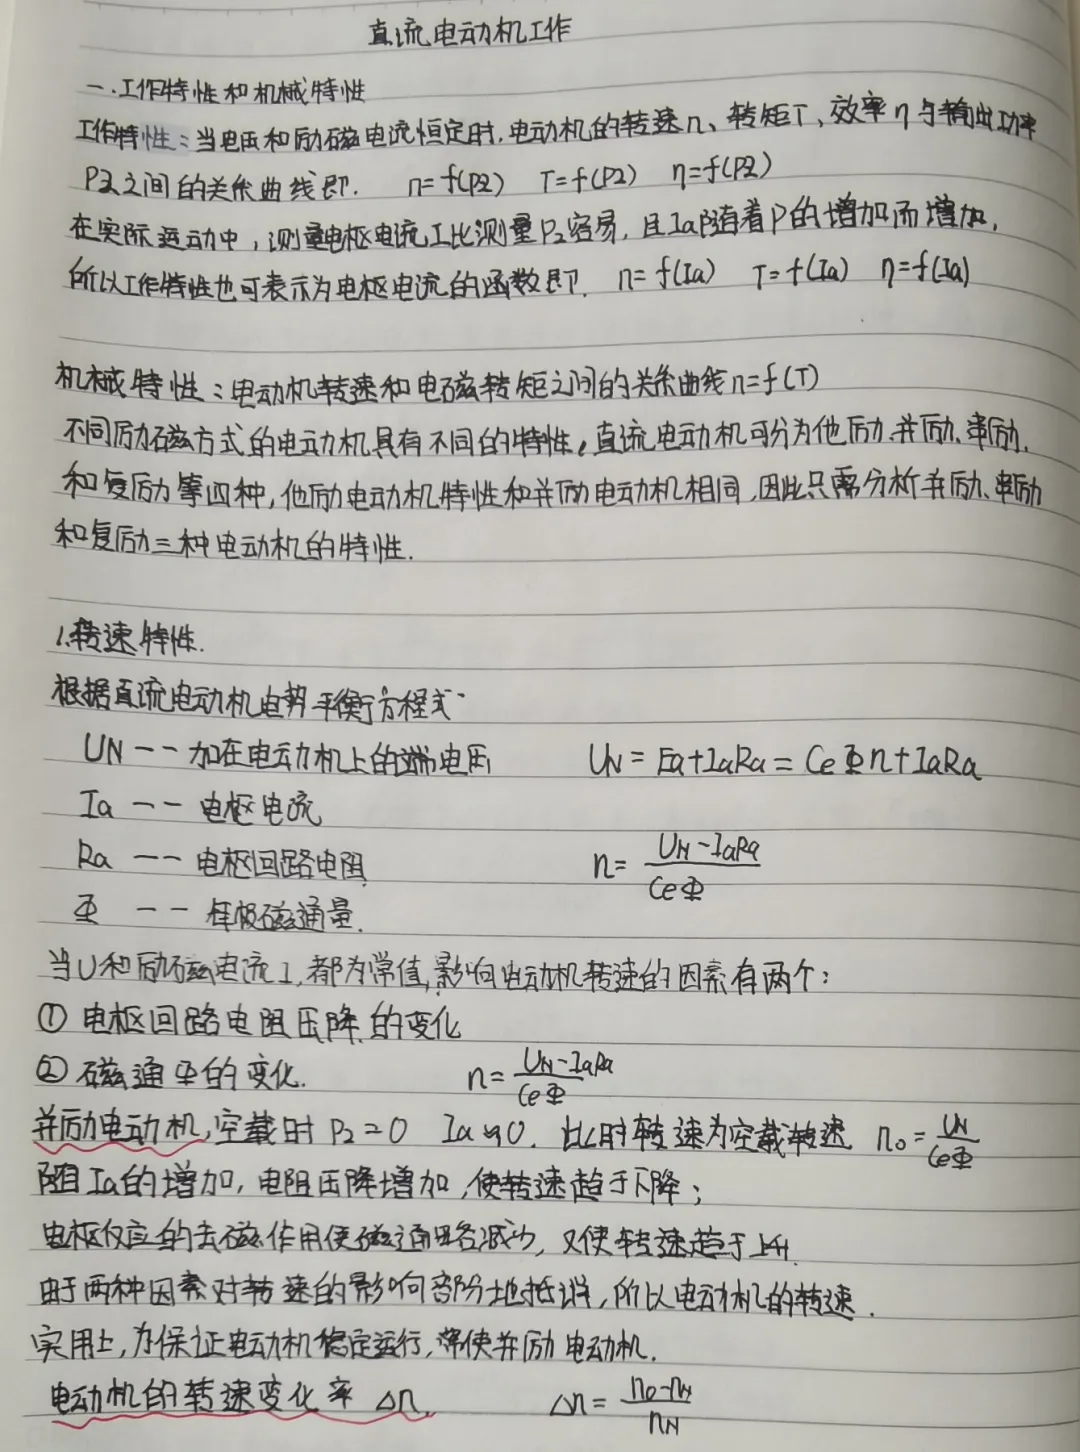 直流电动机工作
一.工作特性和机械特性
工作特性:当电压和励磁电流恒定时,电动机的转速n、转矩T、效率η与输出功率
P2之间的关系曲线即. n=f(P2) T=f(P2) η=f(P2)
在实际运动中,测量电枢电流I比测量P2容易,且Ia随着P的增加而增加,
所以工作特性也可表示为电枢电流的函数即. n=f(Ia) T=f(Ia) η=f(Ia)
机械特性:电动机转速和电磁转矩之间的关系曲线n=f(T)
不同励磁方式的电动机具有不同的特性,直流电动机可分为他励、并励、串励、
和复励等四种,他励电动机特性和并励电动机相同,因此只需分析并励、串励
和复励三种电动机的特性.
1.转速特性.
根据直流电动机电势平衡方程式
UN —— 加在电动机上的端电压 UN=Ea+IaRa=CeΦn+IaRa
Ia —— 电枢电流
Ra —— 电枢回路电阻 n=(UN-IaRa)/(CeΦ)
Φ —— 每极磁通量.
当U和励磁电流I,都为常值,影响电动机转速的因素有两个:
① 电枢回路电阻压降的变化
② 磁通Φ的变化. n=(UN-IaRa)/(CeΦ)
并励电动机,空载时P2=0 Ia≈0. 此时转速为空载转速 n0=UN/(CeΦ)
随Ia的增加,电阻压降增加,使转速趋于下降;
电枢反应的去磁作用使磁通略减少,又使转速趋于上升.
由于两种因素对转速的影响部分地抵消,所以电动机的转速.
实用上,为保证电动机稳定运行,常使并励电动机.
电动机的转速变化率 Δn. Δn=(n0-nN)/nN